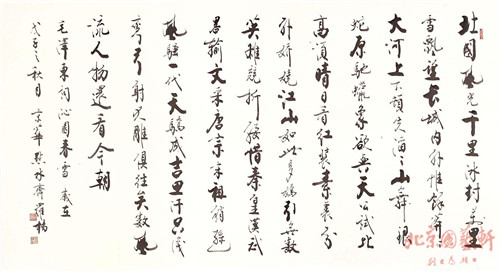 北国风光千里冰封万里
雪飘望长城内外惟余莽
大河上下顿失滔滔山舞银
蛇原驰蜡象欲与天公试比
高须晴日看红装素裹分
外娇娆江山如此多娇引无数
英雄竞折腰惜秦皇汉武
略输文采唐宗宋祖稍逊
风骚一代天骄成吉思汗只识
弯弓射大雕俱往矣数风
流人物还看今朝
毛泽东词沁园春雪 岁在
戊子之秋月 京华 水斋 罗杨
北京国艺轩